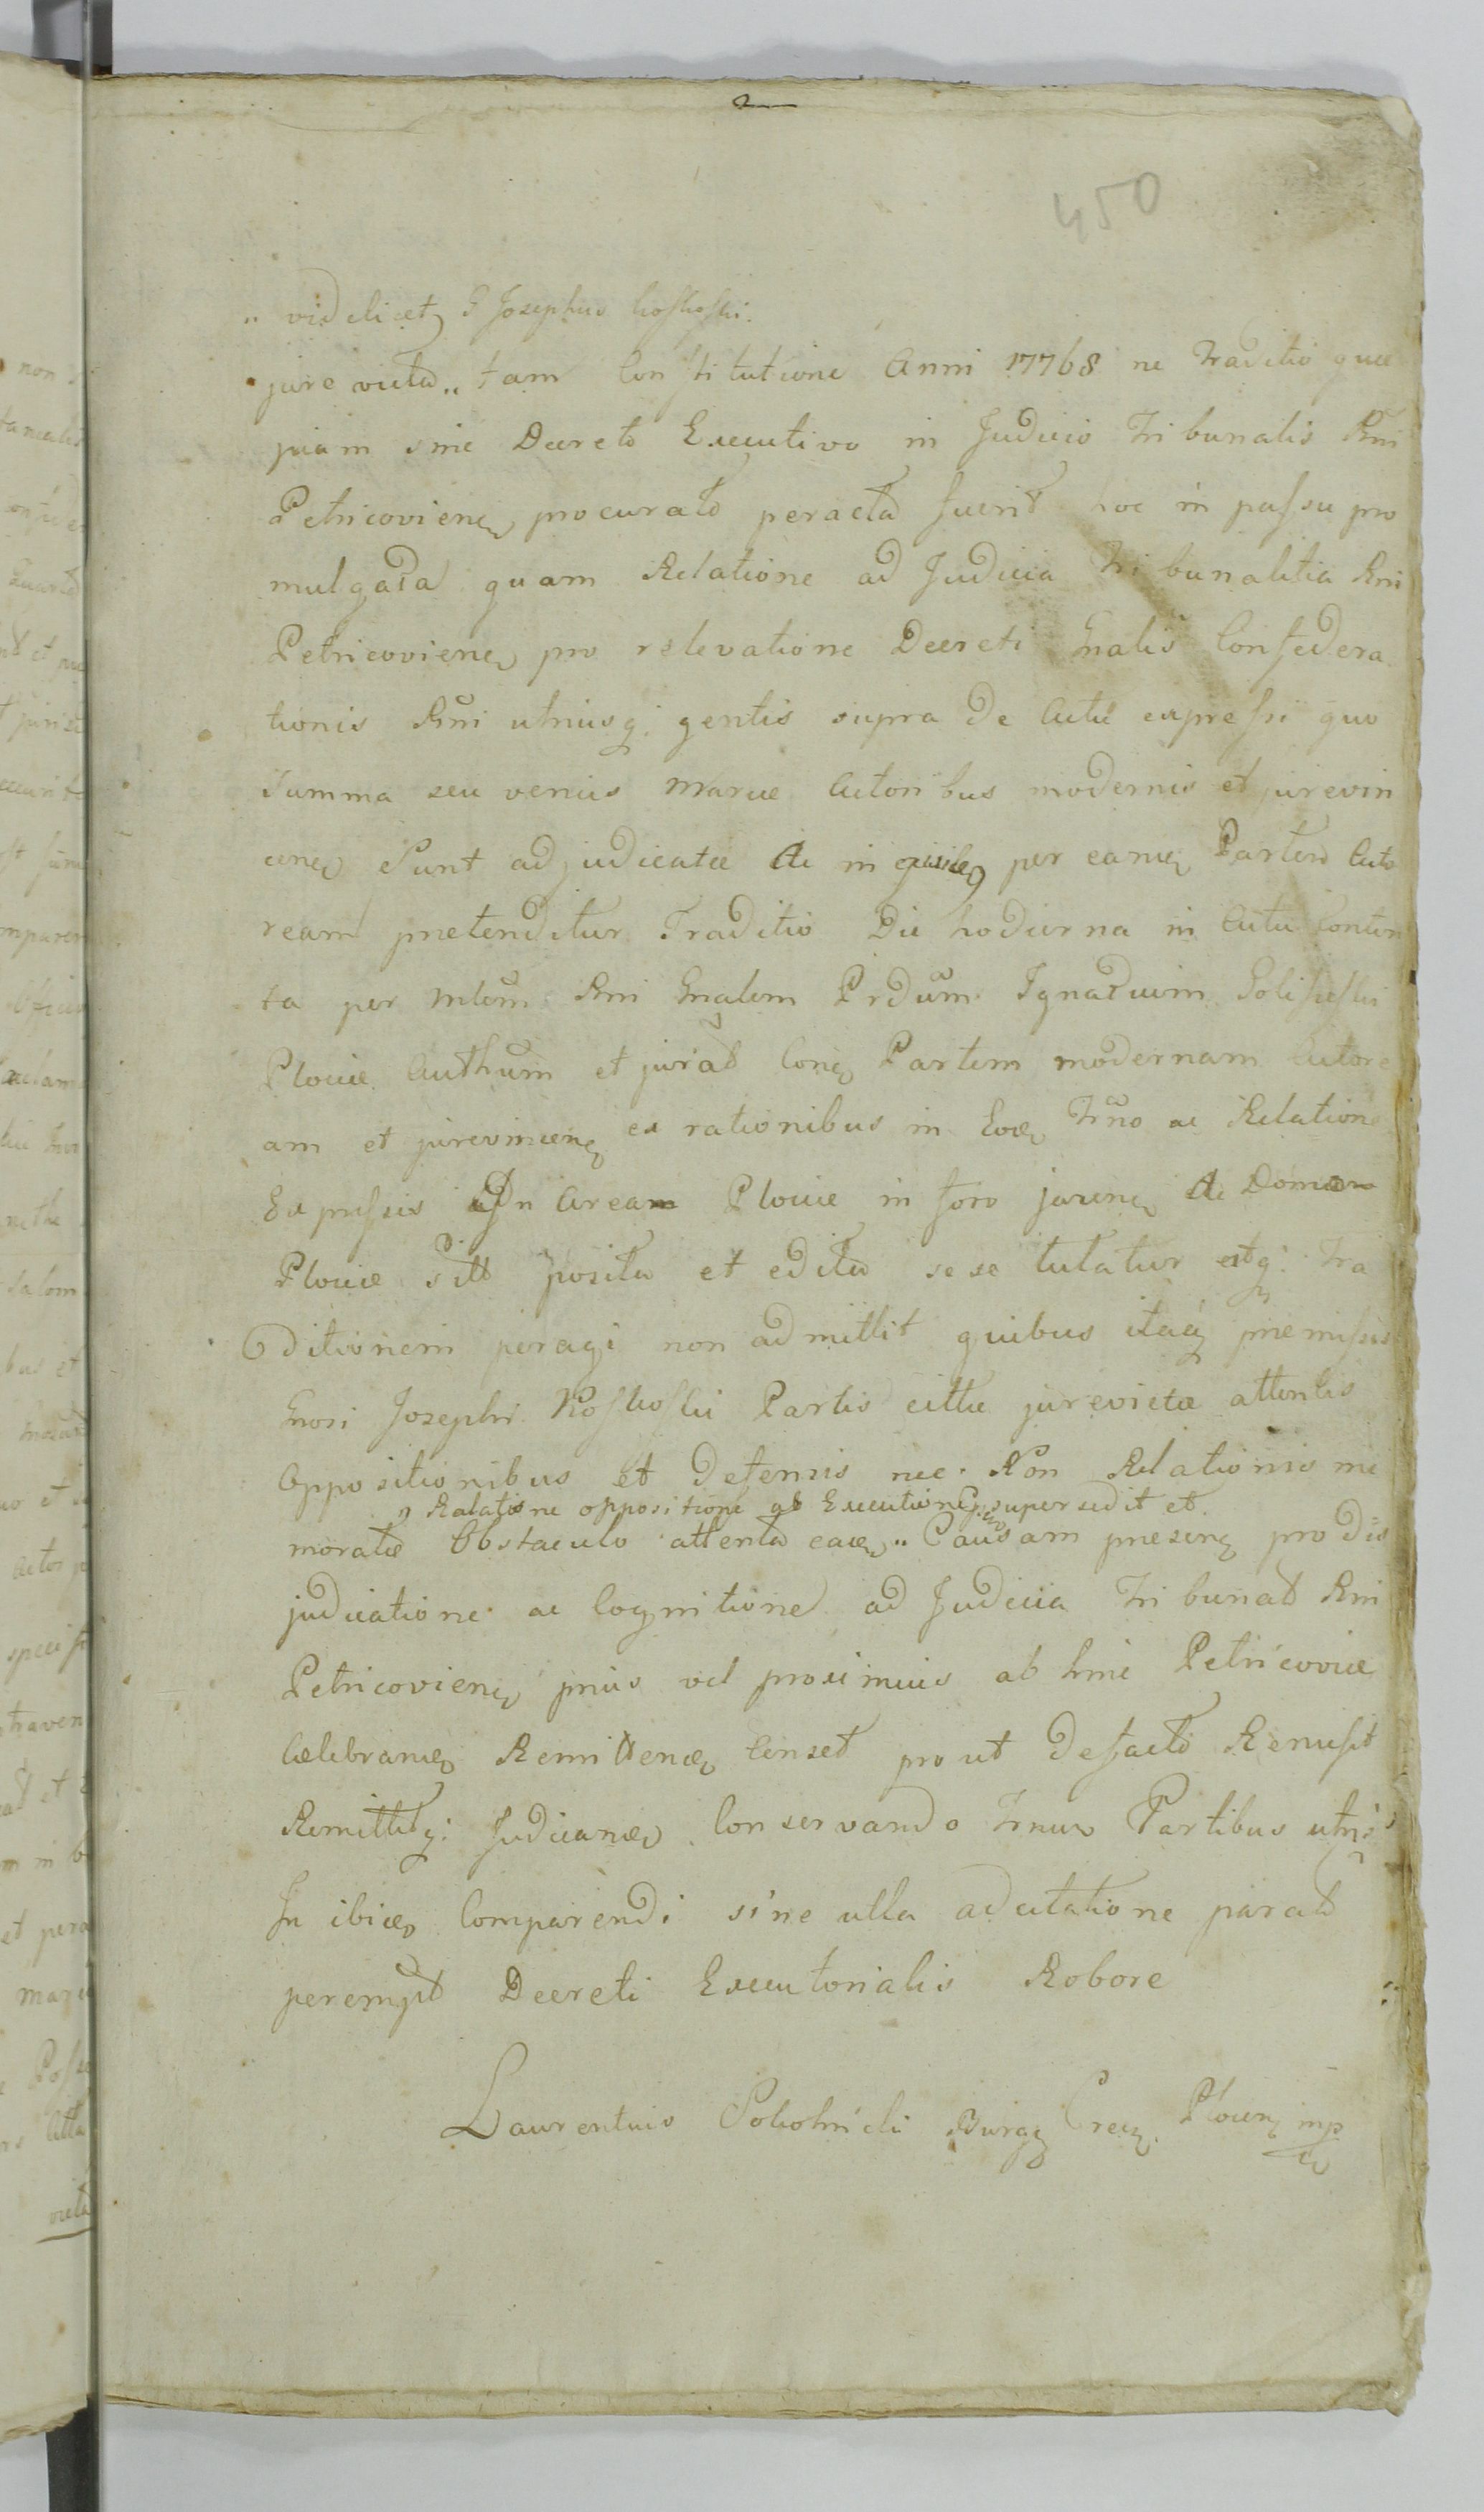 450
„ videlicet G Josephus Koskoski.
jure victa „ tam Constitutione Anni 17768 ne Traditio quæ
piam sine Decreto Executivo in Judicio Tribunalis Rni
Petricovien procurato peracta fuerit hoc in passu pro
mulgata quam Relatione ad Judicia Tribunalitia Rni
Petricovien pro relevatione Decreti Gnalis Confedera
tionis Rni utriusq: gentis supra de Actu expressi quo
Summa seu verius Marcæ Actoribus modernis et jurevin
cen Sunt adjudicatæ Ac in per eam Partem Acto
ream pretenditur Traditio Die hodierna in Actu Conten
ta per Mlem Rni Gnalem Prdum Ignatium
Plociæ Authum et jurat Con Partem modernam Actore
am et jurevincen ex rationibus in Tmno ac Relatione
Expressis In Aream Plociæ in foro jacen Ac Domum
Plociæ sitt posita et edita sese tutatur atq: Tra
ditionem peragi non admittit quibus itaq premissis
Gnosi Josephi Koskoski Partis cittæ jurevictæ attentis
Oppositionibus et Defensis nec Non Relationis me
„ Relatione oppositione ab Executione supersedit et
moratæ Obstaculo attento „ Causam presen pro dis
judicatione ac Cognitione ad Judicia Tribunat Rni
Petricovien prius vel proximius ab hinc Petricoviæ
Celebran Remitten Censet prout Defacto Remisit
Remittitq: Judican Conservando Tmum Partibus utrisq
In ibi Comparendi sine ulla adcitatione parato
perempt Decreti Executorialis Robore
Laurentius Sokolnicki Burg Plocen mp